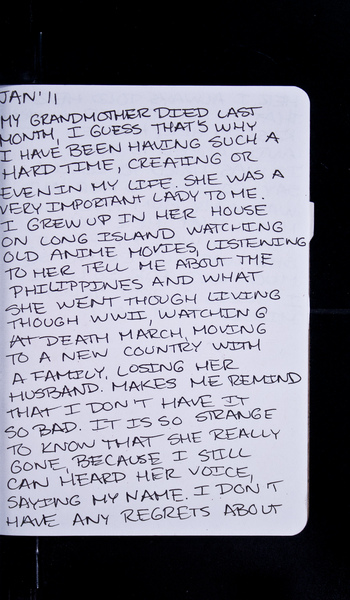 JAN'11
MY GRANDMOTHER DIED LAST
MONTH, I GUESS THAT'S WHY
I HAVE BEEN HAVING SUCH A
HARD TIME, CREATING OR
EVEN IN MY LIFE. SHE WAS A
VERY IMPORTANT LADY TO ME.
I GREW UP IN HER HOUSE
ON LONG ISLAND WATCHING
OLD ANIME MOVIES, LISTENING
TO HER TELL ME ABOUT THE
PHILIPPINES AND WHAT
SHE WENT THOUGH LIVING
THOUGH WWII, WATCHING
AT DEATH MARCH, MOVING
TO A NEW COUNTRY WITH
A FAMILY, LOSING HER
HUSBAND. MAKES ME REMIND
THAT I DON'T HAVE IT
SO BAD. IT IS SO STRANGE
TO KNOW THAT SHE REALLY
GONE, BECAUSE I STILL
CAN HEARD HER VOICE,
SAYING MY NAME. I DON'T
HAVE ANY REGRETS ABOUT